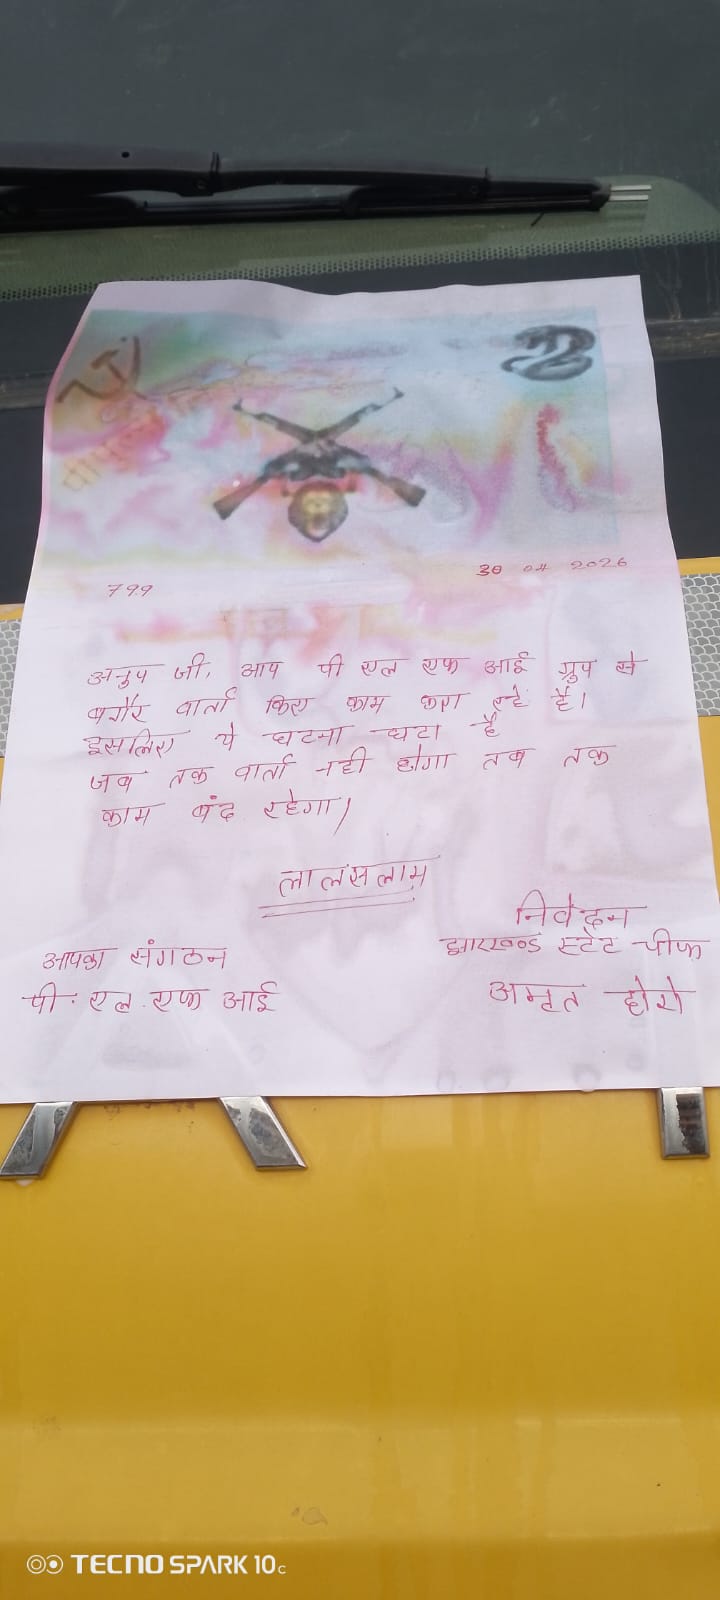 799
30 04 2026
अनुप जी, आप पी एल एफ आई ग्रुप से
बगैर वार्ता किए काम करा रहे हैं।
इसलिए ये घटना घटा है
जब तक वार्ता नही होगा तब तक
काम बंद रहेगा।
लालसलाम
निवेदन
झारखण्ड स्टेट चीफ
अमृत होरो
आपका संगठन
पी. एल. एफ आई
TECNO SPARK 10c